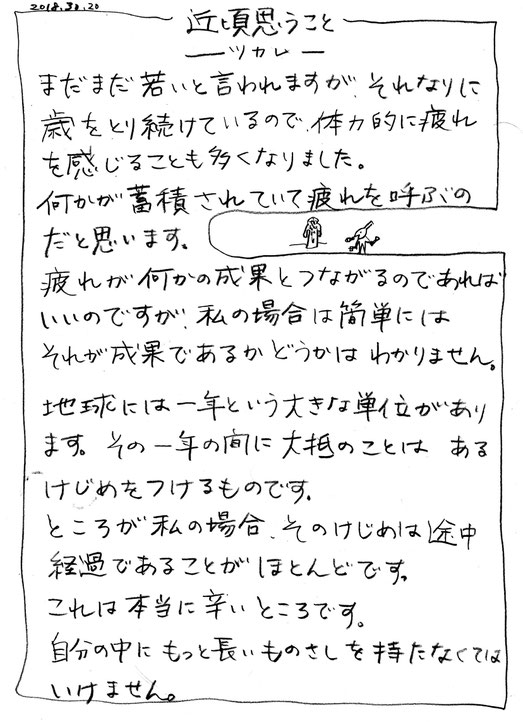 2018.30.20
近頃思うこと
ーツカレー
まだまだ若いと言われますが、それなりに
歳をとり続けているので、体力的に疲れ
を感じることも多くなりました。
何かが蓄積されていて疲れを呼ぶの
だと思います。
疲れが何かの成果とつながるのであれば
いいのですが、私の場合は簡単には
それが成果であるかどうかはわかりません。
地球には一年という大きな単位があり
ます。その一年の間に大抵のことは ある
けじめをつけるものです。
ところが私の場合、そのけじめは途中
経過であることがほとんどです。
これは本当に辛いところです。
自分の中にもっと長いものさしを持たなくては
いけません。